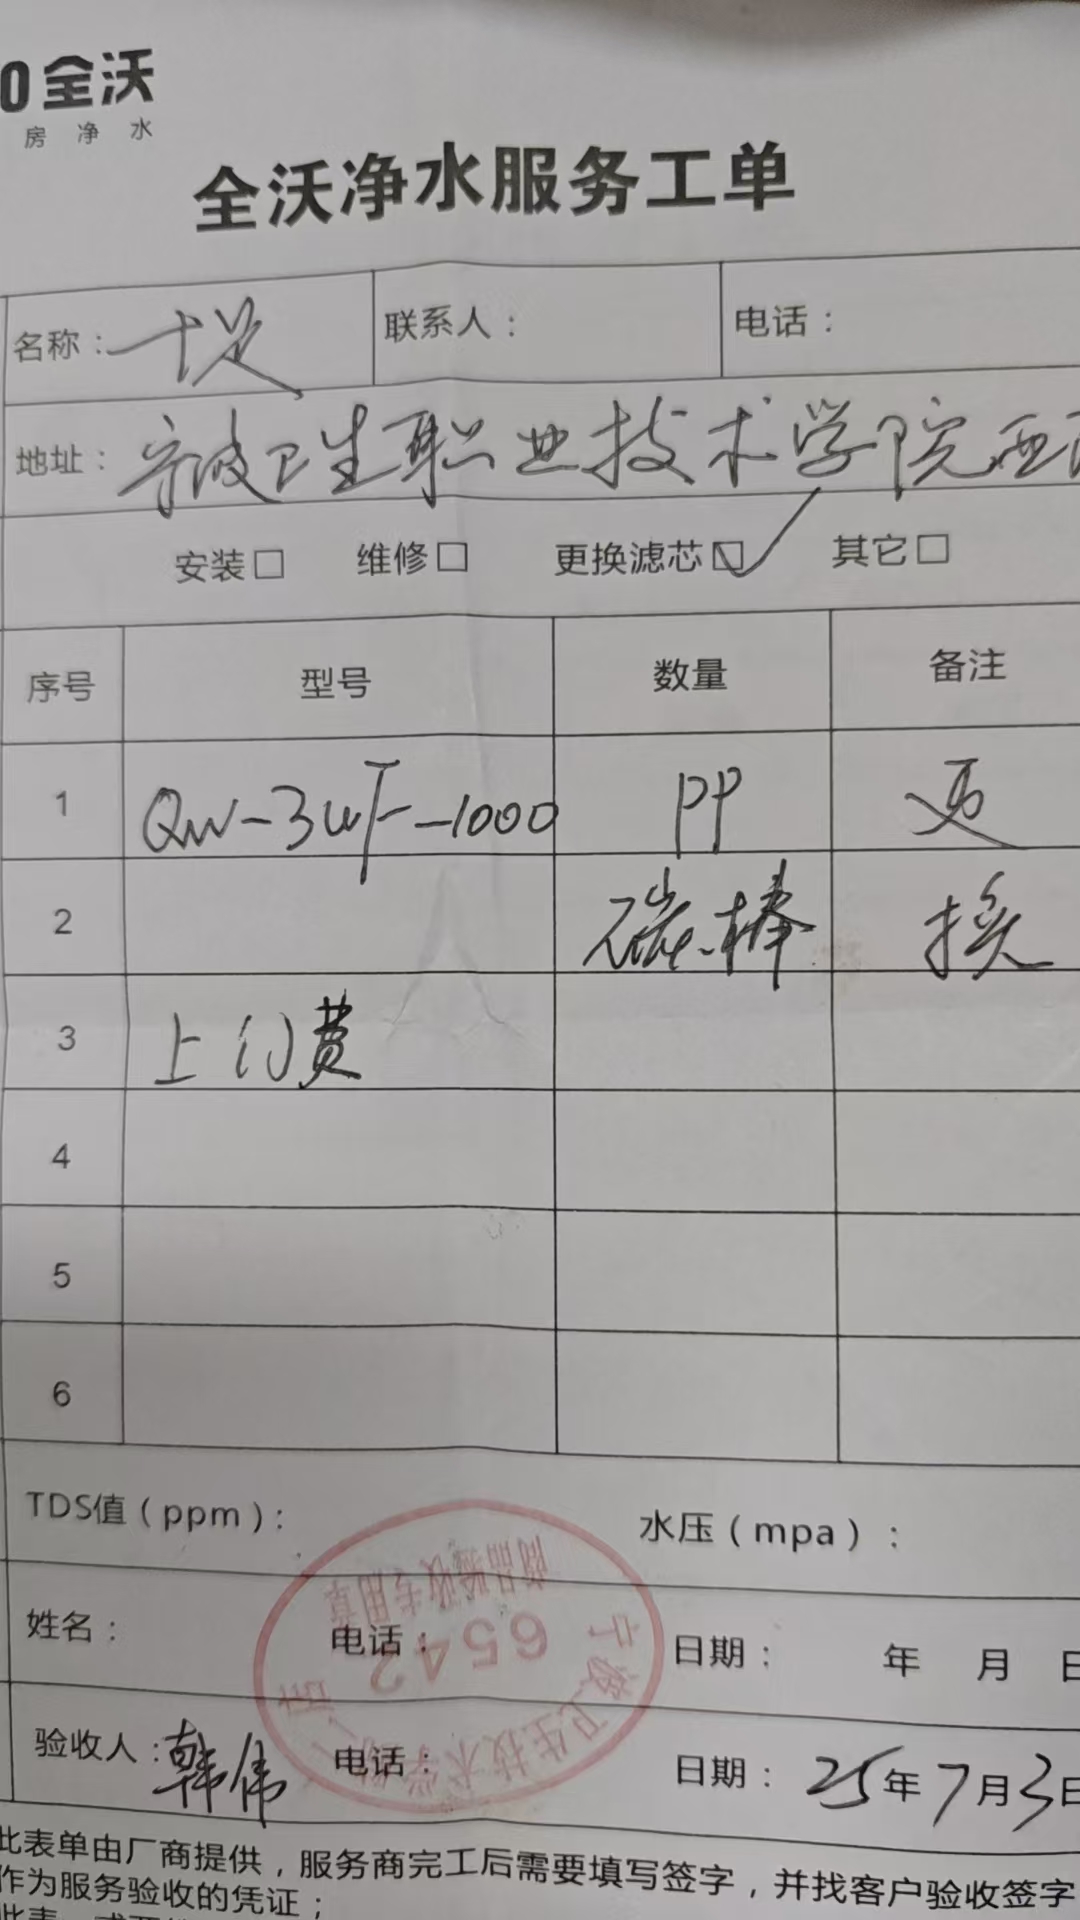 0 全沃
房 净 水
全沃净水服务工单
名称：十足 联系人： 电话：
地址：宁波卫生职业技术学院西
安装□ 维修□ 更换滤芯☑ 其它□
序号 型号 数量 备注
1 QW-3UF-1000 PP 更
2 碳棒 换
3 上门费
4
5
6
TDS值（ppm）： 水压（mpa）：
姓名： 电话： 日期： 年 月 日
验收人：韩伟 电话： 日期：25年7月3日
宁波卫生技术学院一店
6542
商品验收专用章
此表单由厂商提供，服务商完工后需要填写签字，并找客户验收签字
作为服务验收的凭证；